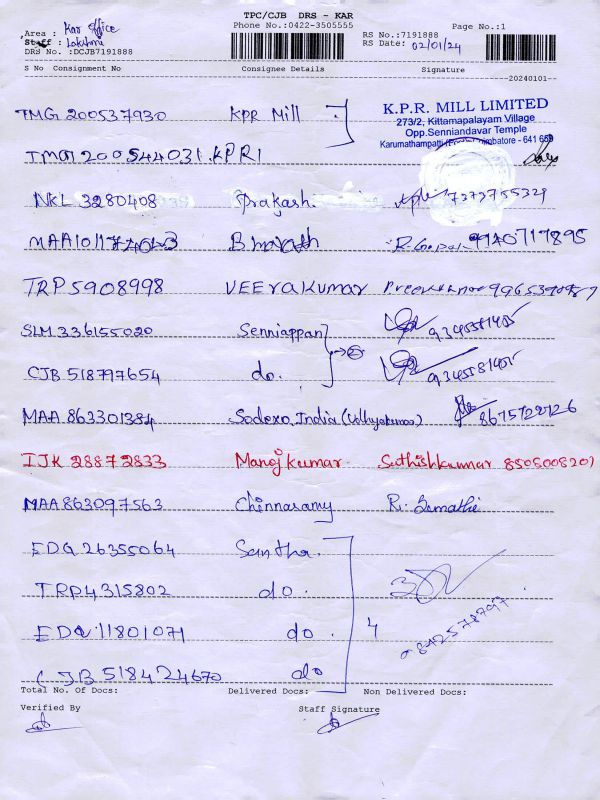 TPC/CJB DRS - KAR
Phone No.:0422-3505555
Page No.:1
Area : Kar Office
Staff : Lakshmi
DRS No :DCJB7191888
RS No.:7191888
RS Date: 02/01/24
S No Consignment No Consignee Details Signature
20240101
TMG 200537930 KPR Mill
K.P.R. MILL LIMITED
273/2, Kittamapalayam Village
Opp.Senniandavar Temple
Karumathampatti Coimbatore - 641 659
200544031 KPR1
NKL 3280408 Prakash. 7373755329
Bharath R. Gopal 9140717895
TRP 5908998 VEErakumar
SLM 336155020 Senniappan
CJB 518797654 do.
MAA 863301384 Sodexo India
IJK 28872833 Manojkumar Sathishkumar 8505008201
MAA 863097563 Chinnasamy R.
EDG 26355064 Santha.
TRP 4315802 do.
11801071 do. 4
CJB 518424670 do
Total No. Of Docs: Delivered Docs: Non Delivered Docs:
Verified By Staff Signature